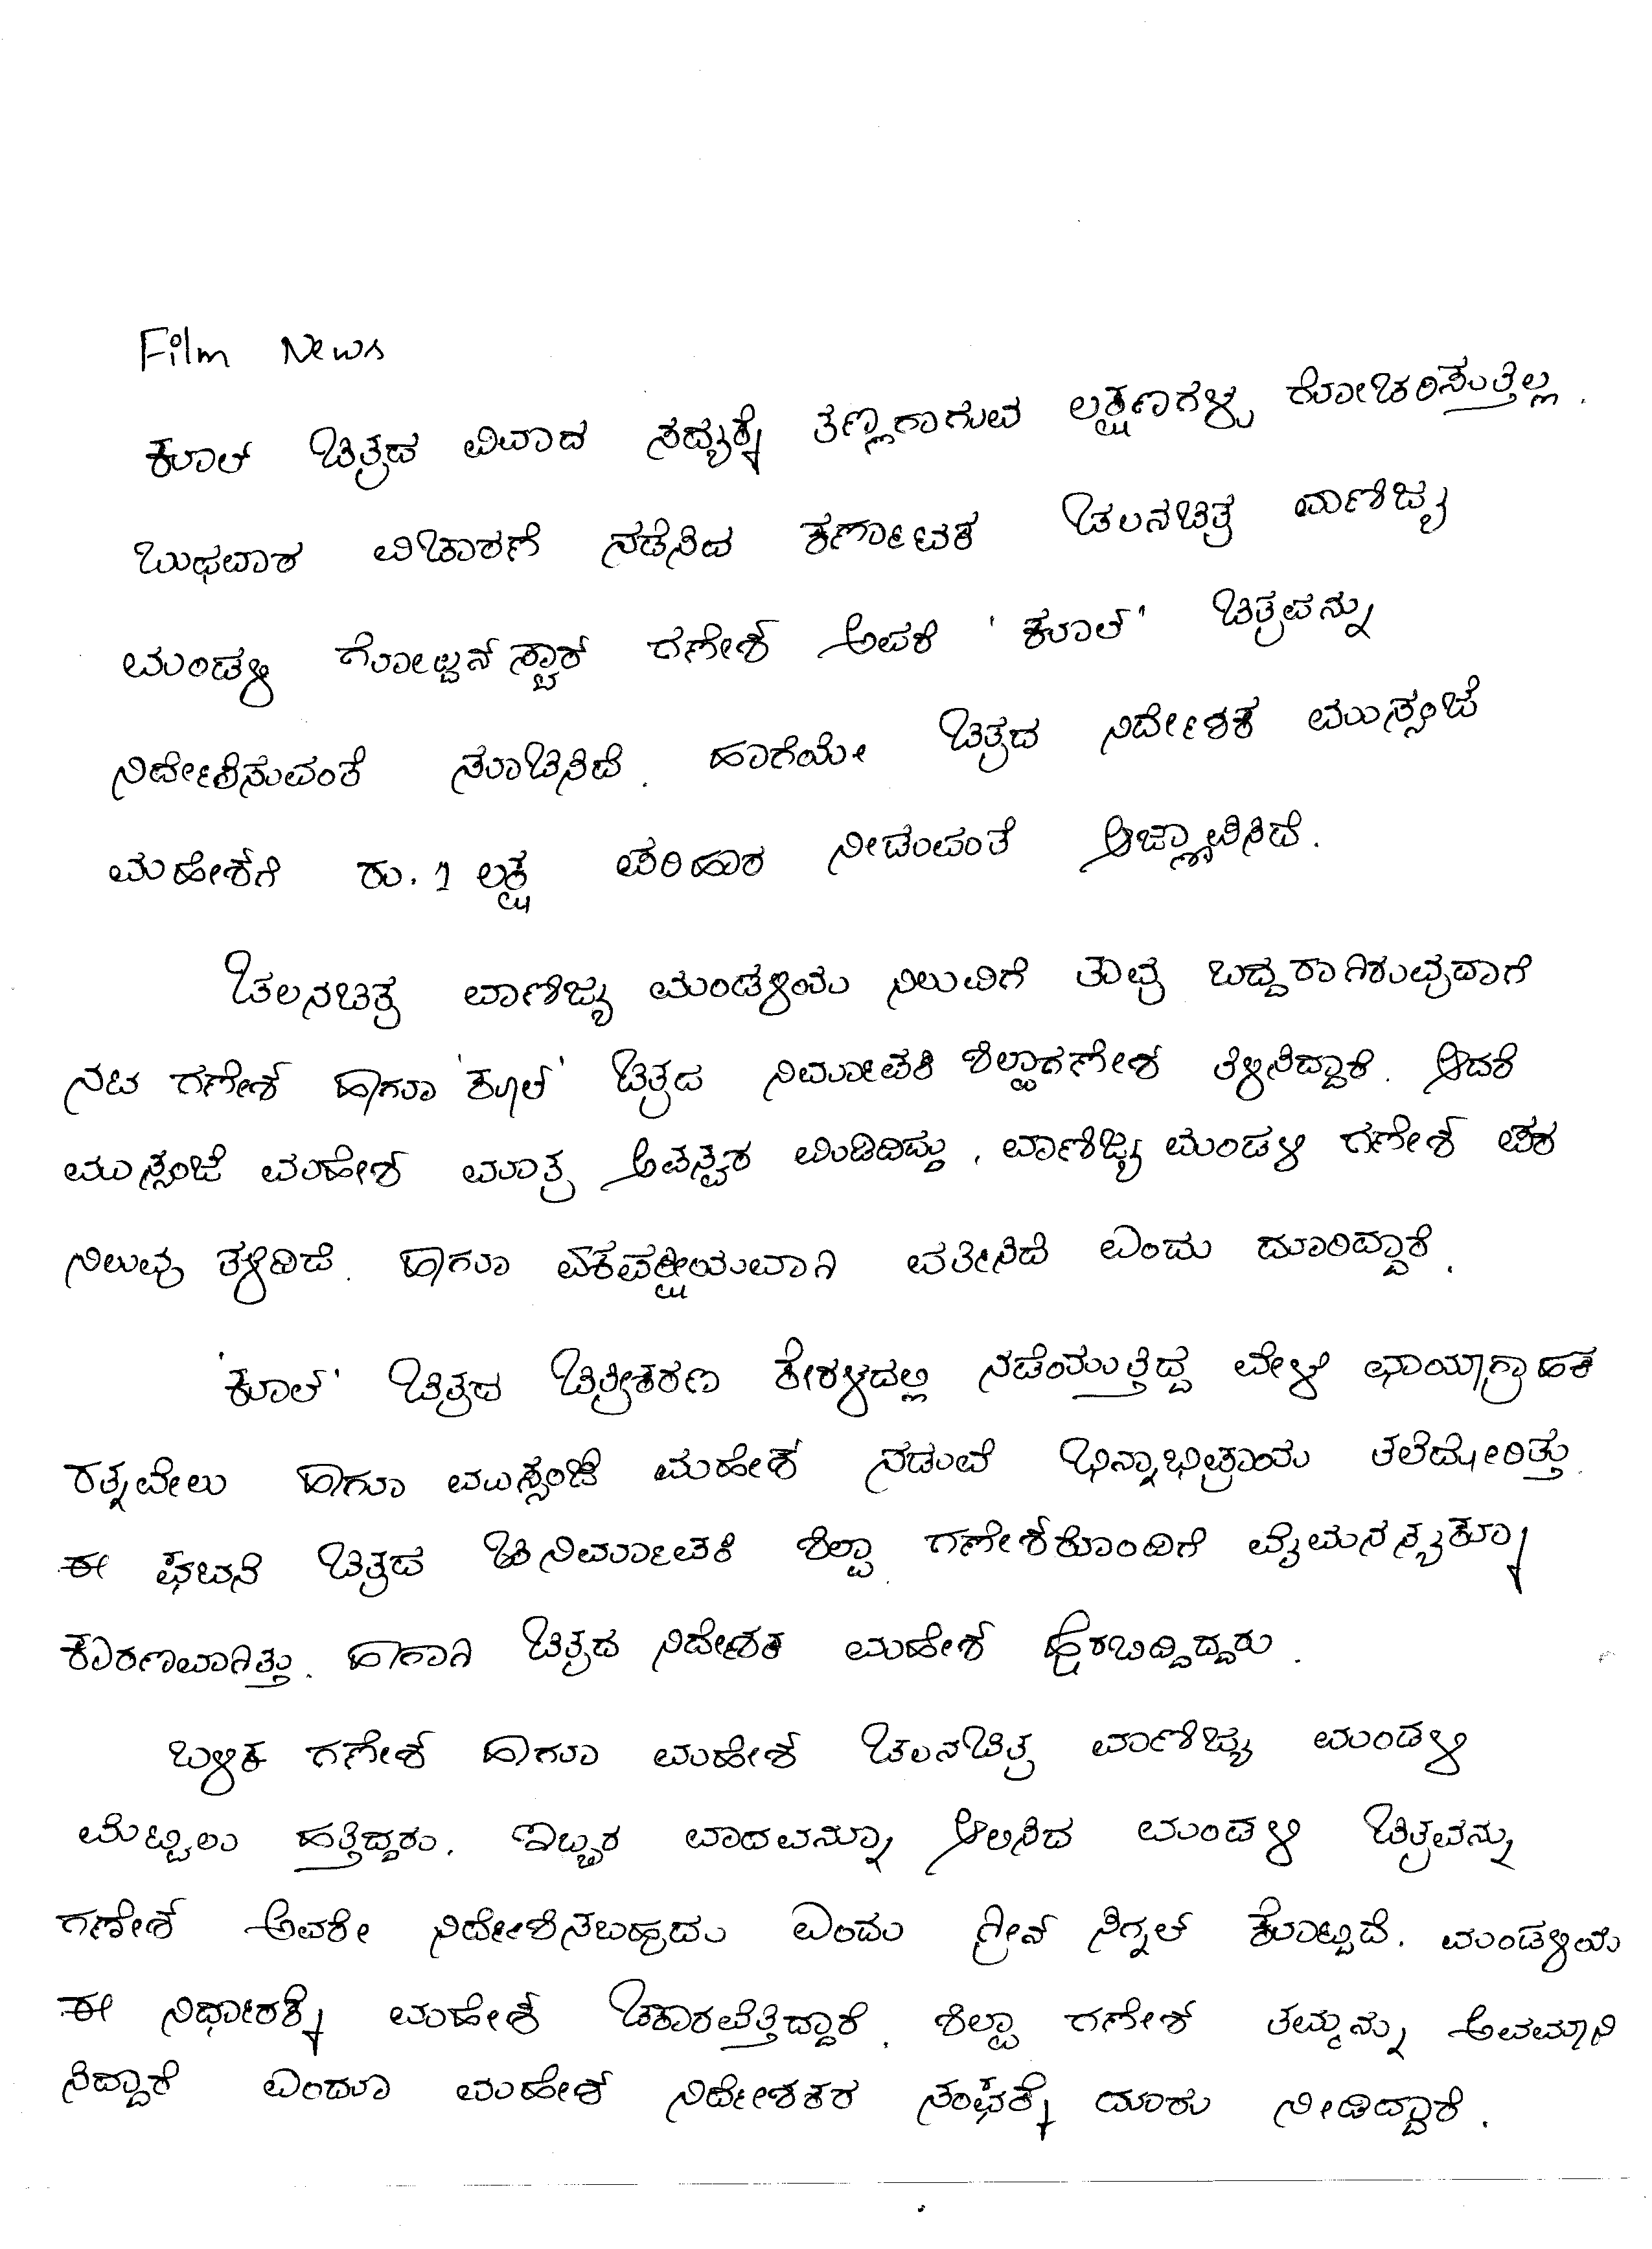 Film News
ಕೂಲ್ ಚಿತ್ರದ ವಿವಾದ ಸದ್ಯಕ್ಕೆ ತಣ್ಣಗಾಗುವ ಲಕ್ಷಣಗಳು ಗೋಚರಿಸುತ್ತಿಲ್ಲ.
ಬುಧವಾರ ವಿಚಾರಣೆ ನಡೆಸಿದ ಕರ್ಣಾಟಕ ಚಲನಚಿತ್ರ ವಾಣಿಜ್ಯ
ಮಂಡ್ಯಳಿ ಗೋಲ್ಡನ್ ಸ್ಟಾರ್ ಗಣೇಶ್ ಅವರೆ 'ಕೂಲ್' ಚಿತ್ರವನ್ನು
ನಿರ್ದೇಶಿಸುವಂತೆ ಸೂಚಿಸಿದೆ. ಹಾಗೆಯೇ ಚಿತ್ರದ ನಿರ್ದೇಶಕ ಮುಸ್ಸಂಜೆ
ಮಹೇಶ್‌ಗೆ ರು. 1 ಲಕ್ಷ ಪರಿಹಾರ ನೀಡುವಂತೆ ಆಜ್ಞಾಪಿಸಿದೆ.
ಚಲನಚಿತ್ರ ವಾಣಿಜ್ಯ ಮಂಡಳಿಯ ನಿಲುವಿಗೆ ತಾವು ಬದ್ದರಾಗಿರುವುದಾಗಿ
ನಟ ಗಣೇಶ್ ಹಾಗೂ 'ಕೂಲ್' ಚಿತ್ರದ ನಿರ್ಮಾಪಕಿ ಶಿಲ್ಪಾಗಣೇಶ್ ತಿಳಿಸಿದ್ದಾರೆ. ಆದರೆ
ಮುಸ್ಸಂಜೆ ಮಹೇಶ್ ಮಾತ್ರ ಅಪಸ್ವರ ಮಿಡಿದಿದ್ದು, ವಾಣಿಜ್ಯ ಮಂಡಳಿ ಗಣೇಶ್ ಪರ
ನಿಲುವು ತಳೆದಿದೆ. ಹಾಗೂ ಏಕಪಕ್ಷೀಯವಾಗಿ ವರ್ತಿಸಿದೆ ಎಂದು ದೂರಿದ್ದಾರೆ.
'ಕೂಲ್' ಚಿತ್ರದ ಚಿತ್ರೀಕರಣ ಕೇರಳದಲ್ಲಿ ನಡೆಯುತ್ತಿದ್ದ ವೇಳೆ ಛಾಯಾಗ್ರಾಹಕ
ರತ್ನವೇಲು ಹಾಗೂ ಮುಸ್ಸಂಜೆ ಮಹೇಶ ನಡುವೆ ಭಿನ್ನಾಭಿಪ್ರಾಯ ತಲೆದೋರಿತ್ತು.
ಈ ಘಟನೆ ಚಿತ್ರದ ನಿರ್ಮಾಪಕಿ ಶಿಲ್ಪಾ ಗಣೇಶ್‌ರೊಂದಿಗೆ ವೈಮನಸ್ಯಕ್ಕೂ
ಕಾರಣವಾಗಿತ್ತು. ಹಾಗಾಗಿ ಚಿತ್ರದ ನಿರ್ದೇಶಕ ಮಹೇಶ್ ಹೊರಬಿದ್ದಿದ್ದರು.
ಬಳಿಕ ಗಣೇಶ್ ಹಾಗೂ ಮಹೇಶ್ ಚಲನಚಿತ್ರ ವಾಣಿಜ್ಯ ಮಂಡಳಿ
ಮೆಟ್ಟಿಲು ಹತ್ತಿದ್ದರು. ಇಬ್ಬರ ವಾದವನ್ನೂ ಆಲಿಸಿದ ಮಂಡಳಿ ಚಿತ್ರವನ್ನು
ಗಣೇಶ್ ಅವರೇ ನಿರ್ದೇಶಿಸಬಹುದು ಎಂದು ಗ್ರೀನ್ ಸಿಗ್ನಲ್ ಕೊಟ್ಟಿದೆ. ಮಂಡಳಿಯ
ಈ ನಿರ್ಧಾರಕ್ಕೆ ಮಹೇಶ್ ಚಕಾರವೆತ್ತಿದ್ದಾರೆ. ಶಿಲ್ಪಾ ಗಣೇಶ್ ತಮ್ಮನ್ನು ಅವಮಾನಿ
ಸಿದ್ದಾರೆ ಎಂದೂ ಮಹೇಶ್ ನಿರ್ದೇಶಕರ ಸಂಘಕ್ಕೆ ದೂರು ನೀಡಿದ್ದಾರೆ.